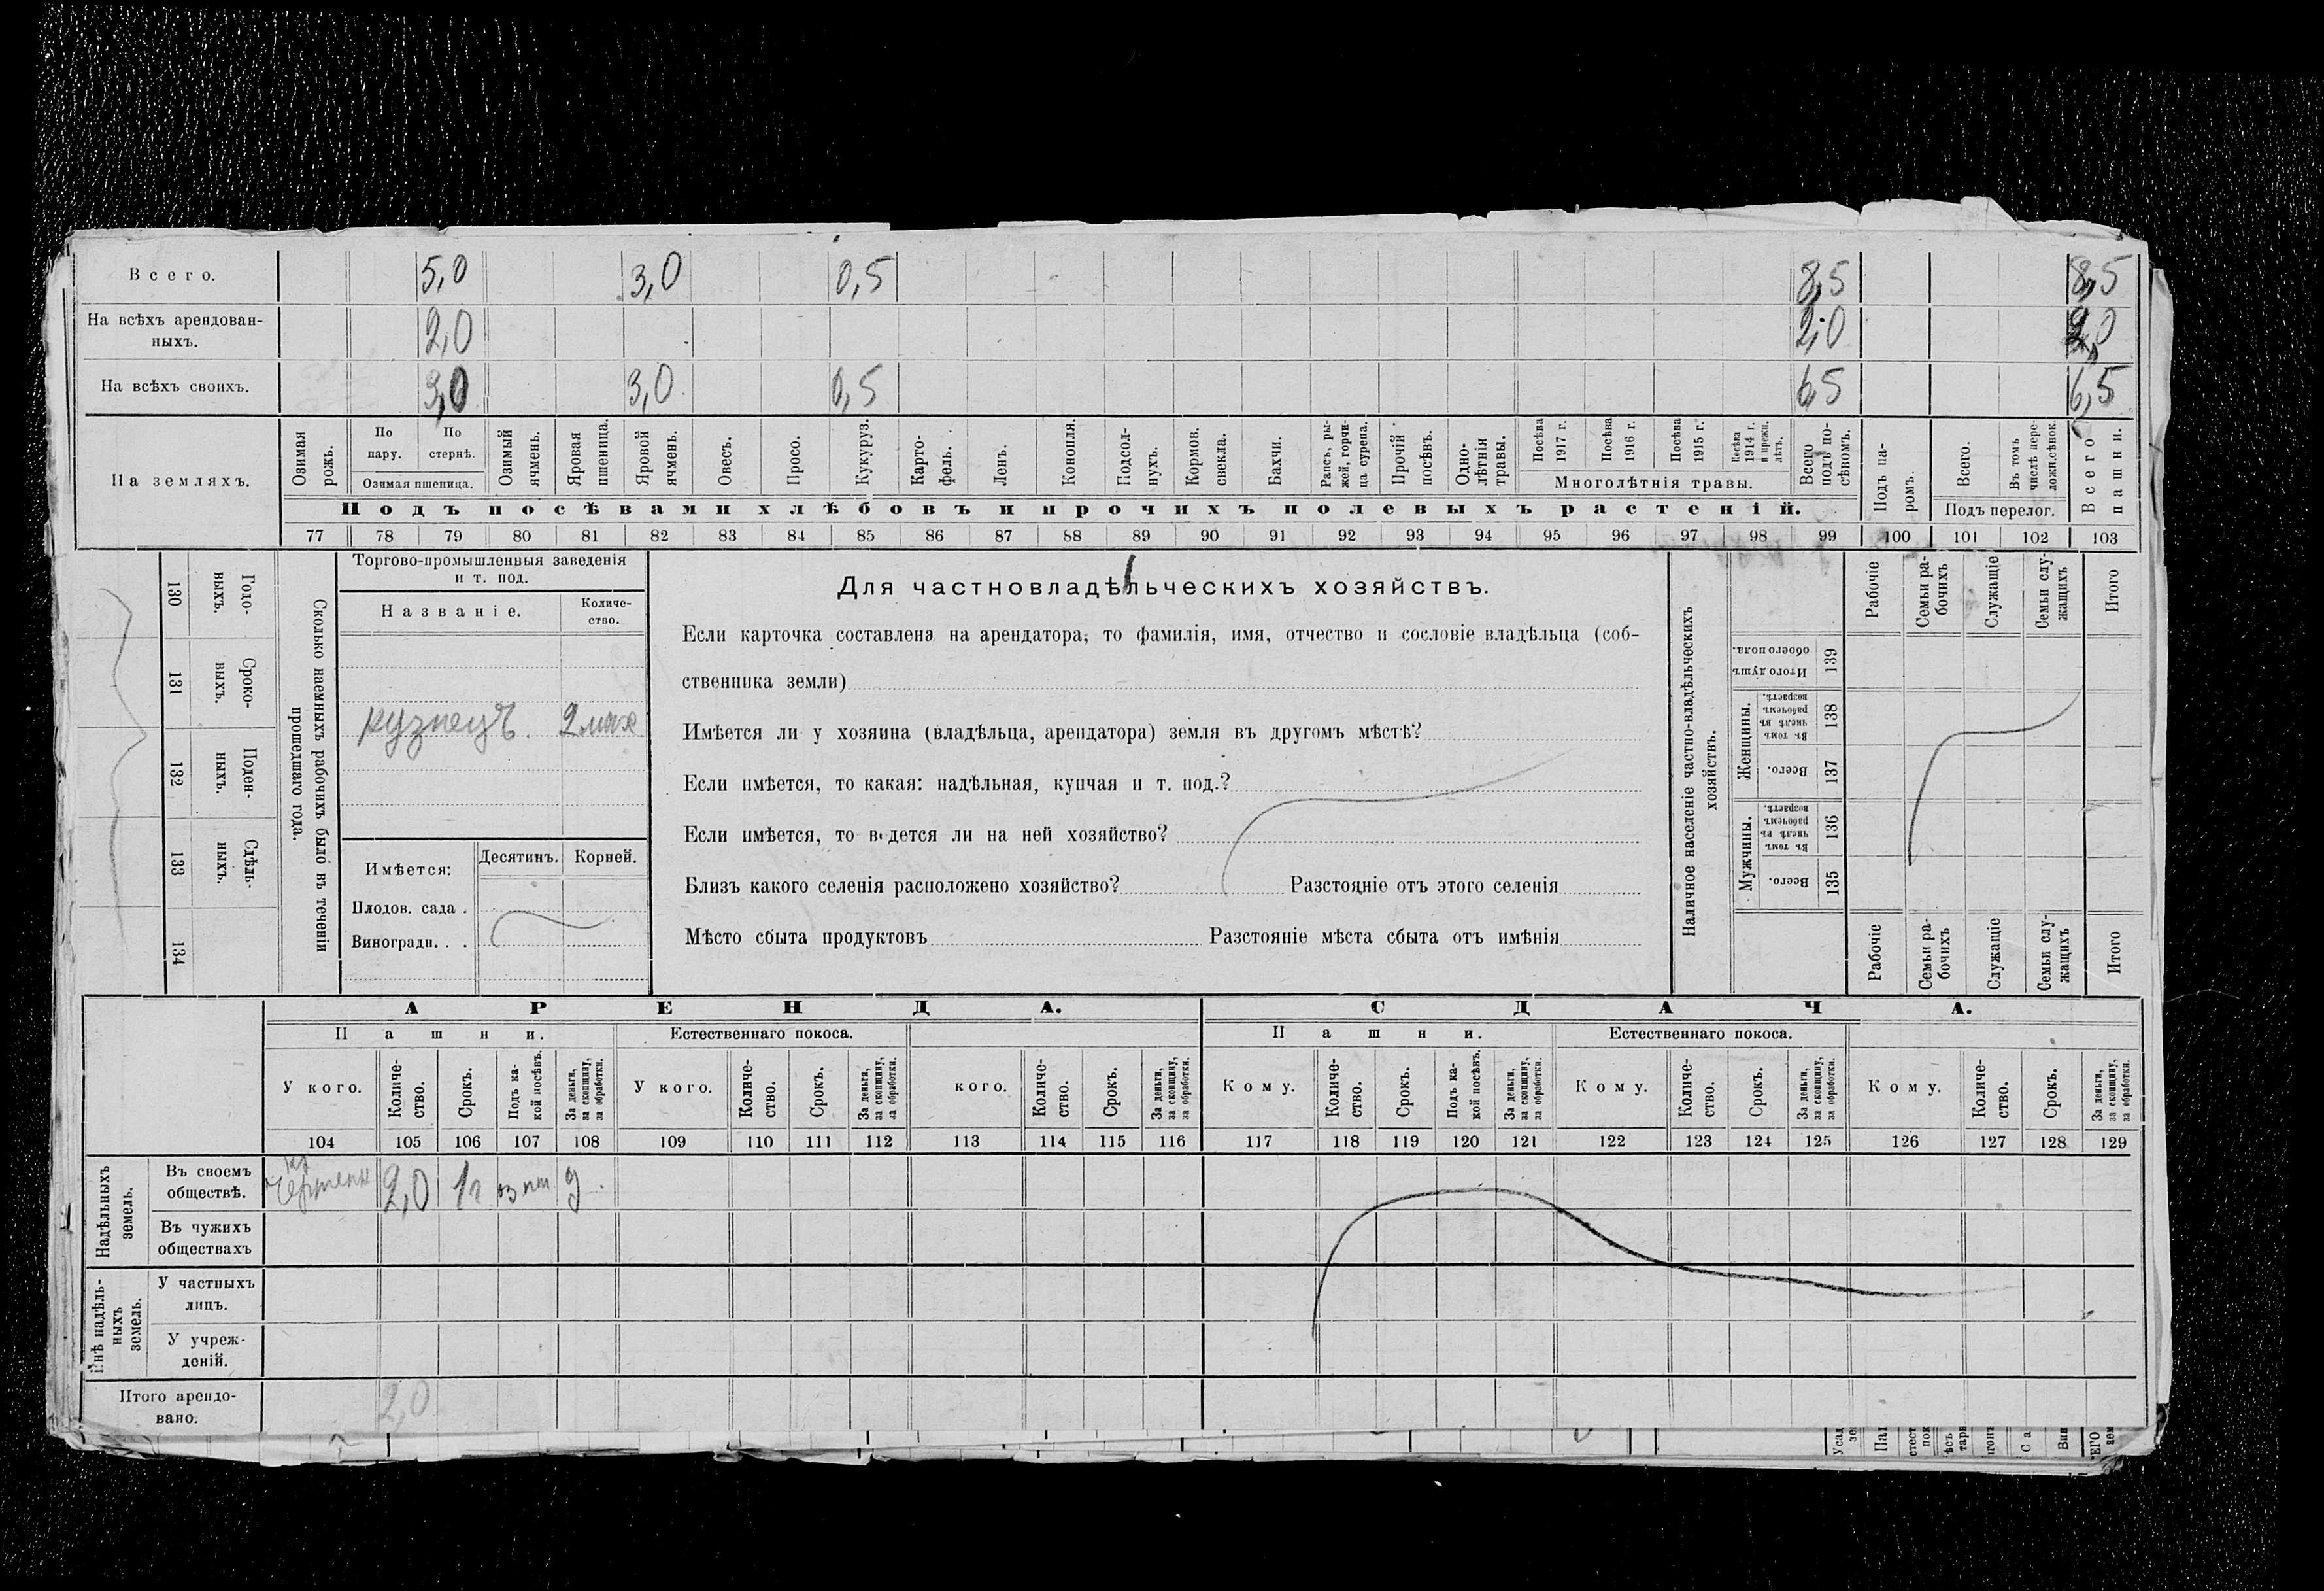 Всего. 5,0 3,0 0,5 8,5 8,5
На всѣхъ арендован-
ныхъ. 2,0 2,0 2,0
На всѣхъ своихъ. 3,0 3,0 0,5 6,5 6,5
На земляхъ.
Озимая рожь.
По пару.
По стернѣ.
Озимая пшеница.
Озимый ячмень.
Яровая пшеница.
Яровой ячмень.
Овесъ.
Просо.
Кукуруз.
Карто-
фель.
Ленъ.
Конопля.
Подсол-
нухъ.
Кормов. свекла.
Бахчи.
Рапсъ, ры-
жей, горчи-
ца сурепа.
Прочій посѣвъ.
Одно-
лѣтнія травы.
Посѣва 1917 г.
Посѣва 1916 г.
Посѣва 1915 г.
Посѣва 1914 г. и прежн. лѣтъ.
Многолѣтнія травы.
Всего подъ по-
сѣвомъ.
Подъ па-
ромъ.
Всего.
Въ томъ числѣ пере-
ложн. сѣнок.
Подъ перелог.
Всего пашни.
Подъ посѣвами хлѣбовъ и прочихъ полевыхъ растеній.
77 78 79 80 81 82 83 84 85 86 87 88 89 90 91 92 93 94 95 96 97 98 99 100 101 102 103
130 Годо-
ныхъ.
131 Сроко-
ныхъ.
132 Поден-
ныхъ.
133 Сдѣль-
ныхъ.
134
Сколько наемныхъ рабочихъ было въ теченіи
прошедшаго года.
Торгово-промышленныя заведенія
и т. под.
Названіе. Количе-
ство.
кузнецъ.
Имѣется: Десятинъ. Корней.
Плодов. сада.
Виноградн. . .
Для частновладѣльческихъ хозяйствъ.
Если карточка составлена на арендатора, то фамилія, имя, отчество и сословіе владѣльца (соб-
ственника земли)
Имѣется ли у хозяина (владѣльца, арендатора) земля въ другомъ мѣстѣ?
Если имѣется, то какая: надѣльная, купчая и т. под.?
Если имѣется, то ведется ли на ней хозяйство?
Близъ какого селенія расположено хозяйство? Разстояніе отъ этого селенія
Мѣсто сбыта продуктовъ Разстояніе мѣста сбыта отъ имѣнія
Наличное населеніе частно-владѣльческихъ
хозяйствъ.
Рабочіе
Семьи ра-
бочихъ
Служащіе
Семьи слу-
жащихъ
Итого
Итого душъ обоего пола. 139
Женщины.
Въ томъ числѣ въ рабочемъ возрастѣ. 138
Всего. 137
Мужчины.
Въ томъ числѣ въ рабочемъ возрастѣ. 136
Всего. 135
Рабочіе
Семьи ра-
бочихъ
Служащіе
Семьи слу-
жащихъ
Итого
АРЕНДА. СДАЧА.
Пашни. Естественнаго покоса. Пашни. Естественнаго покоса.
У кого. Количе-
ство. Срокъ. Подъ ка-
кой посѣвъ. За деньги, за скопщину, за обработки.
У кого. Количе-
ство. Срокъ. За деньги, за скопщину, за обработки.
кого. Количе-
ство. Срокъ. За деньги, за скопщину, за обработки.
Кому. Количе-
ство. Срокъ. Подъ ка-
кой посѣвъ. За деньги, за скопщину, за обработки.
Кому. Количе-
ство. Срокъ. За деньги, за скопщину, за обработки.
Кому. Количе-
ство. Срокъ. За деньги, за скопщину, за обработки.
104 105 106 107 108 109 110 111 112 113 114 115 116 117 118 119 120 121 122 123 124 125 126 127 128 129
Надѣльныхъ
земель.
Въ своемъ
обществѣ. 2,0 1 г
Въ чужихъ
обществахъ
Внѣ надѣль-
ныхъ
земель.
У частныхъ
лицъ.
У учреж-
деній.
Итого арендо-
вано. 2,0